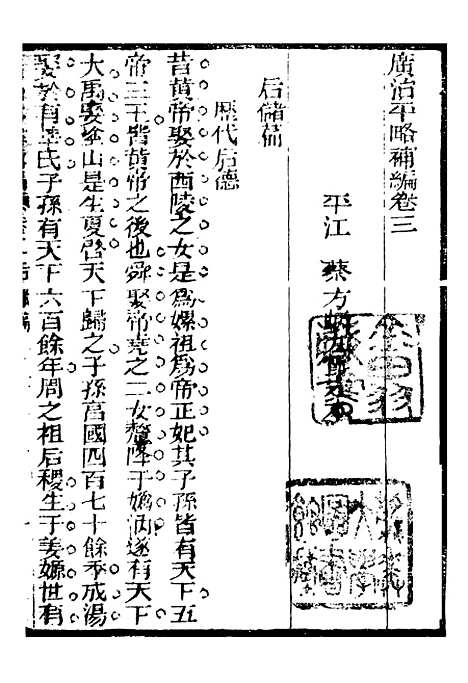 廣治平略補編卷三
平江 蔡方
后儲篇
歷代后德
昔黃帝娶於西陵之女是爲嫘祖爲帝正妃其子孫皆有天下五
帝三王皆黃帝之後也舜娶帝堯之二女釐降于嬀汭遂有天下
大禹娶塗山是生夏啓天下歸之子孫富國四百七十餘年成湯
娶於有㜪氏子孫有天下六百餘年周之祖后稷生于姜嫄世有